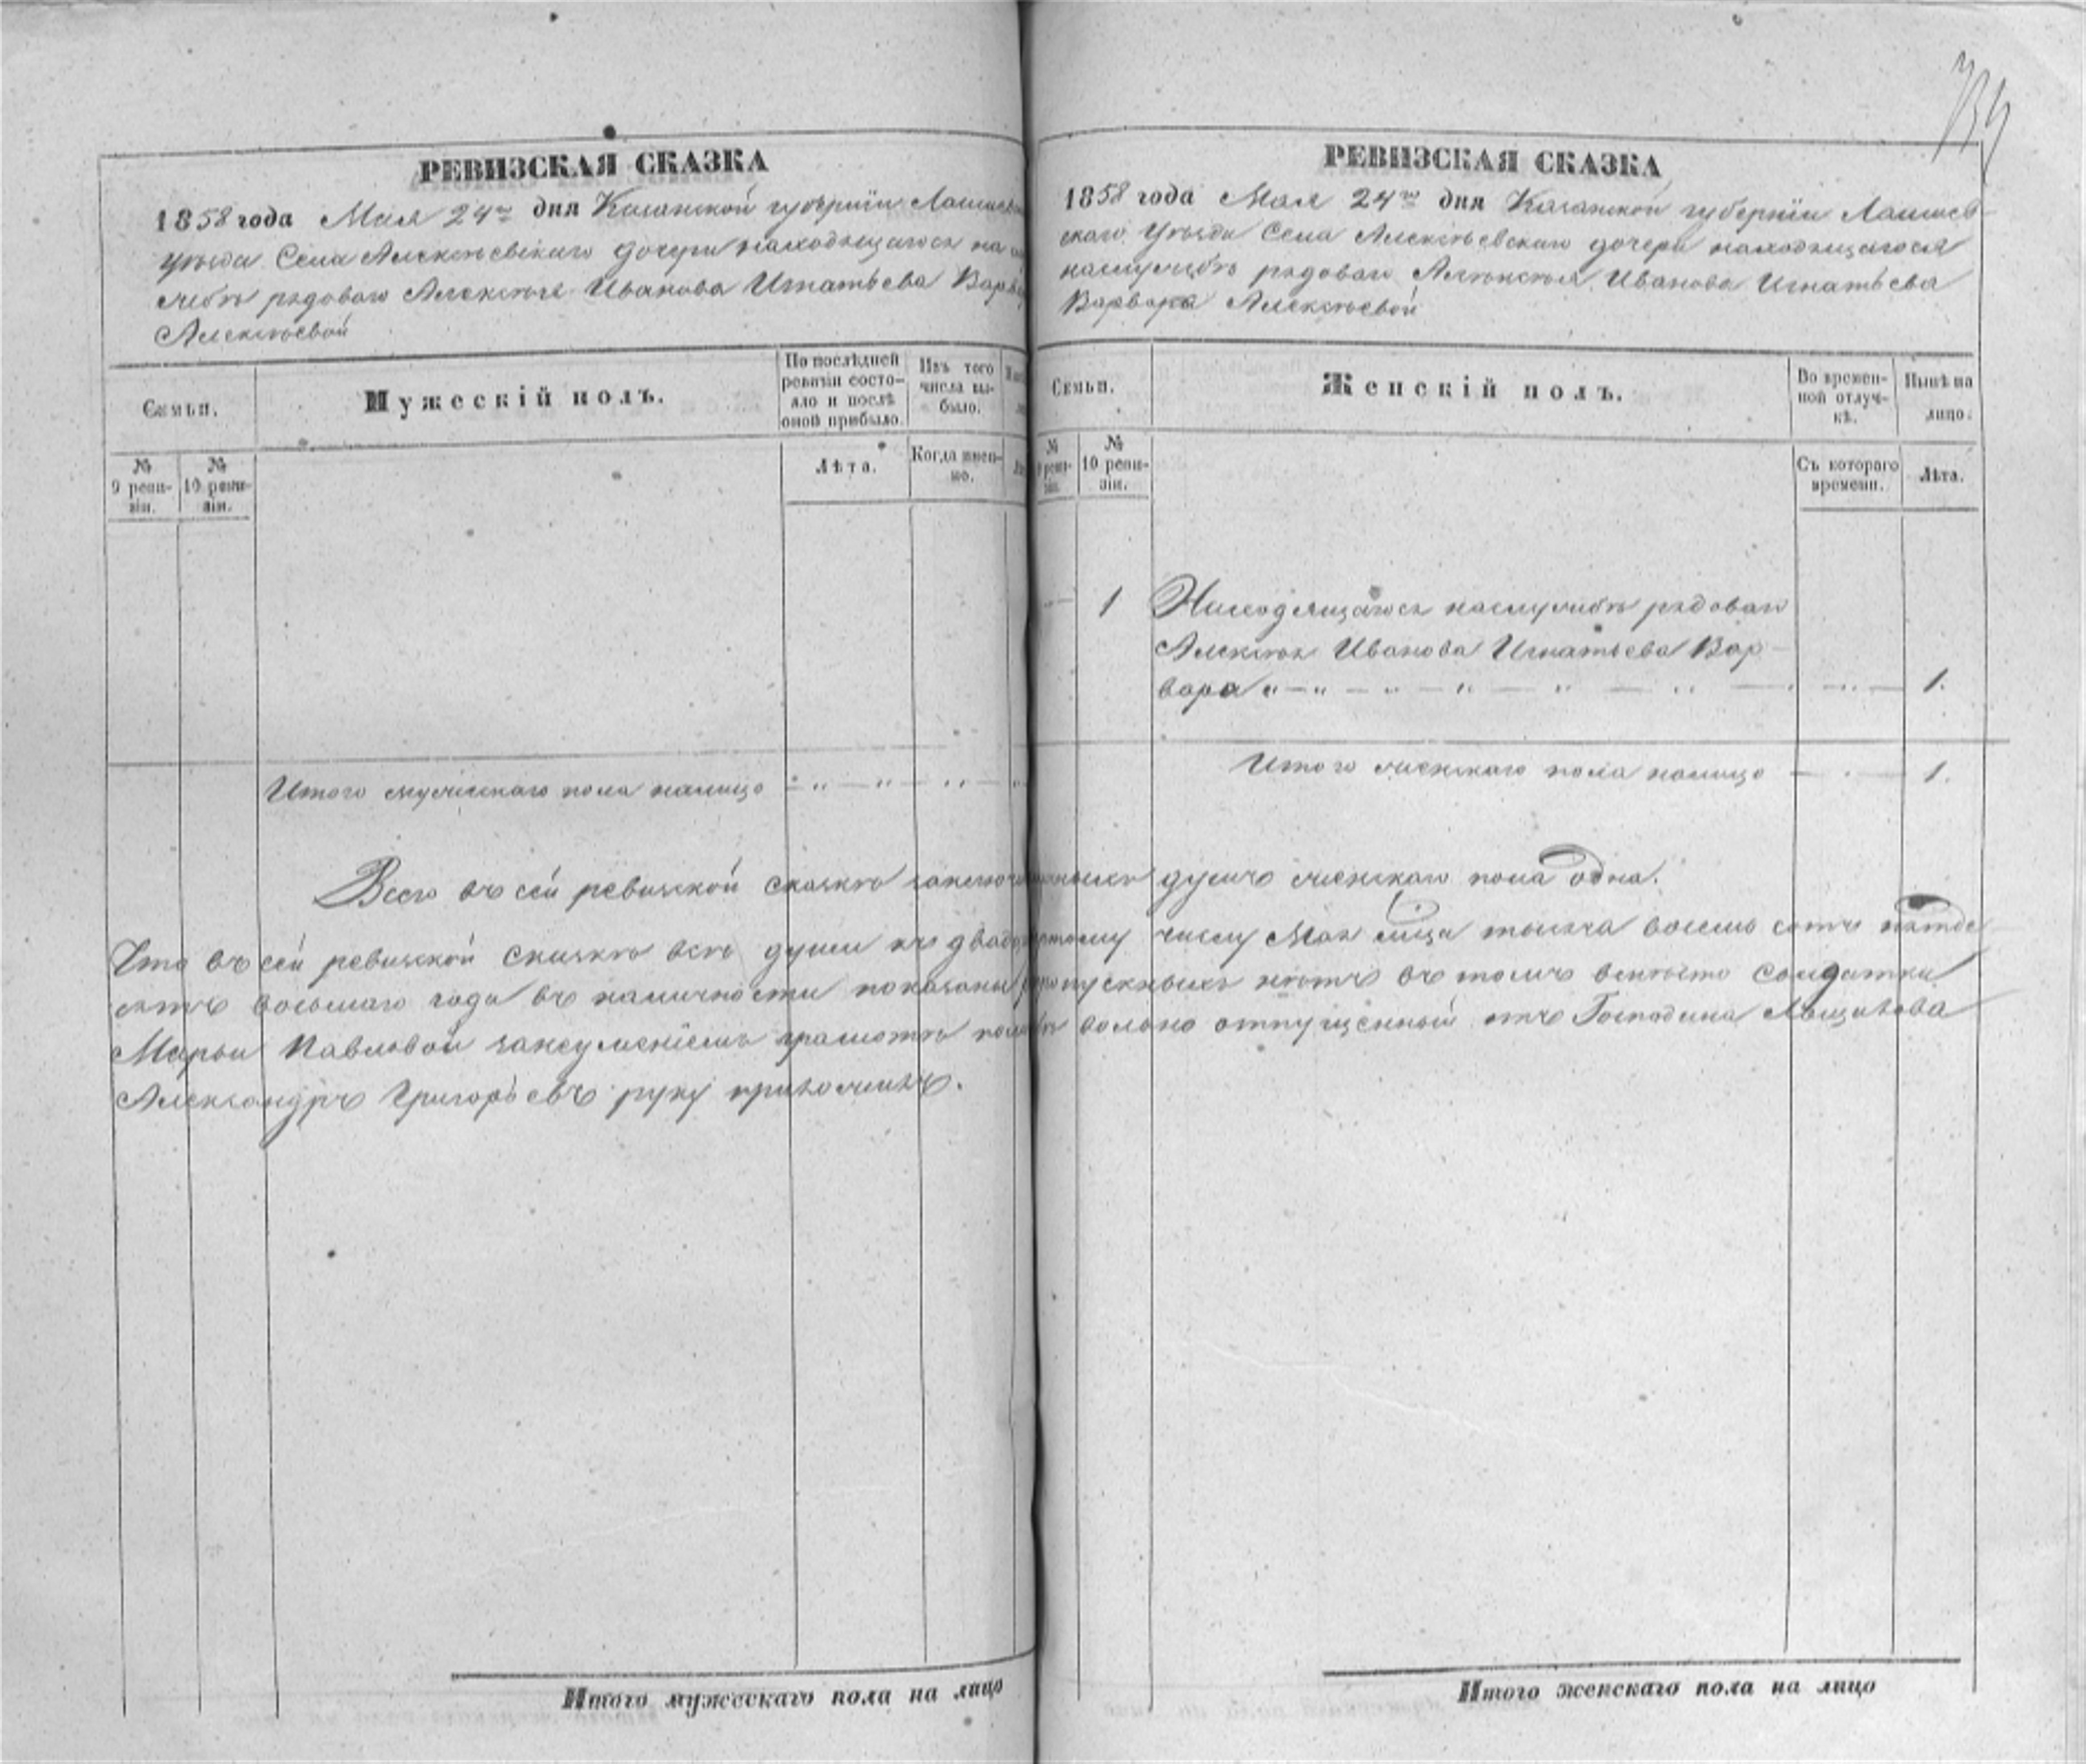 734
РЕВИЗСКАЯ СКАЗКА
1858 года Мая 24го дня Казанской губерніи Лаишевск
уѣзда Села Алексѣевскаго дочери находящагося на
службѣ рядоваго Алексѣя Иванова Игнатьева Варв
Алексѣевой
Семьи.
Мужескій полъ.
По послѣдней ревизіи состояло и послѣ оной прибыло.
Изъ того числа выбыло.
№ 9 ревизіи.
№ 10 ревизіи.
Лѣта.
Когда именно.
Итого мужескаго пола налицо
РЕВИЗСКАЯ СКАЗКА
1858 года Мая 24го дня Казанской губерніи Лаишев-
скаго Уѣзда Села Алексѣевскаго дочери находящагося
на службѣ рядоваго Алексѣя Иванова Игнатьева
Варвара Алексѣевой
Семьи.
Женскій полъ.
Во временной отлучкѣ.
Нынѣ на лицо.
№ 9 ревизіи.
№ 10 ревизіи.
Съ котораго времени.
Лѣта.
1 Находящагося на службѣ рядоваго
Алексѣя Иванова Игнатьева Вар-
вара 1.
Итого женскаго пола налицо 1.
Всего въ сей ревизской сказкѣ душъ женскаго пола одна.
Что въ сей ревизской сказкѣ всѣ души къ числу Мая мца тысяча восемь сотъ пятьде
сятъ восьмаго года въ наличности показаны пропускныхъ нѣтъ въ томъ вмѣсто Солдатки
Марьи Павловой грамотѣ вольно отпущенный отъ Господина
Александръ Григорьевъ руку приложилъ.
Итого мужескаго пола на лицо
Итого женскаго пола на лицо